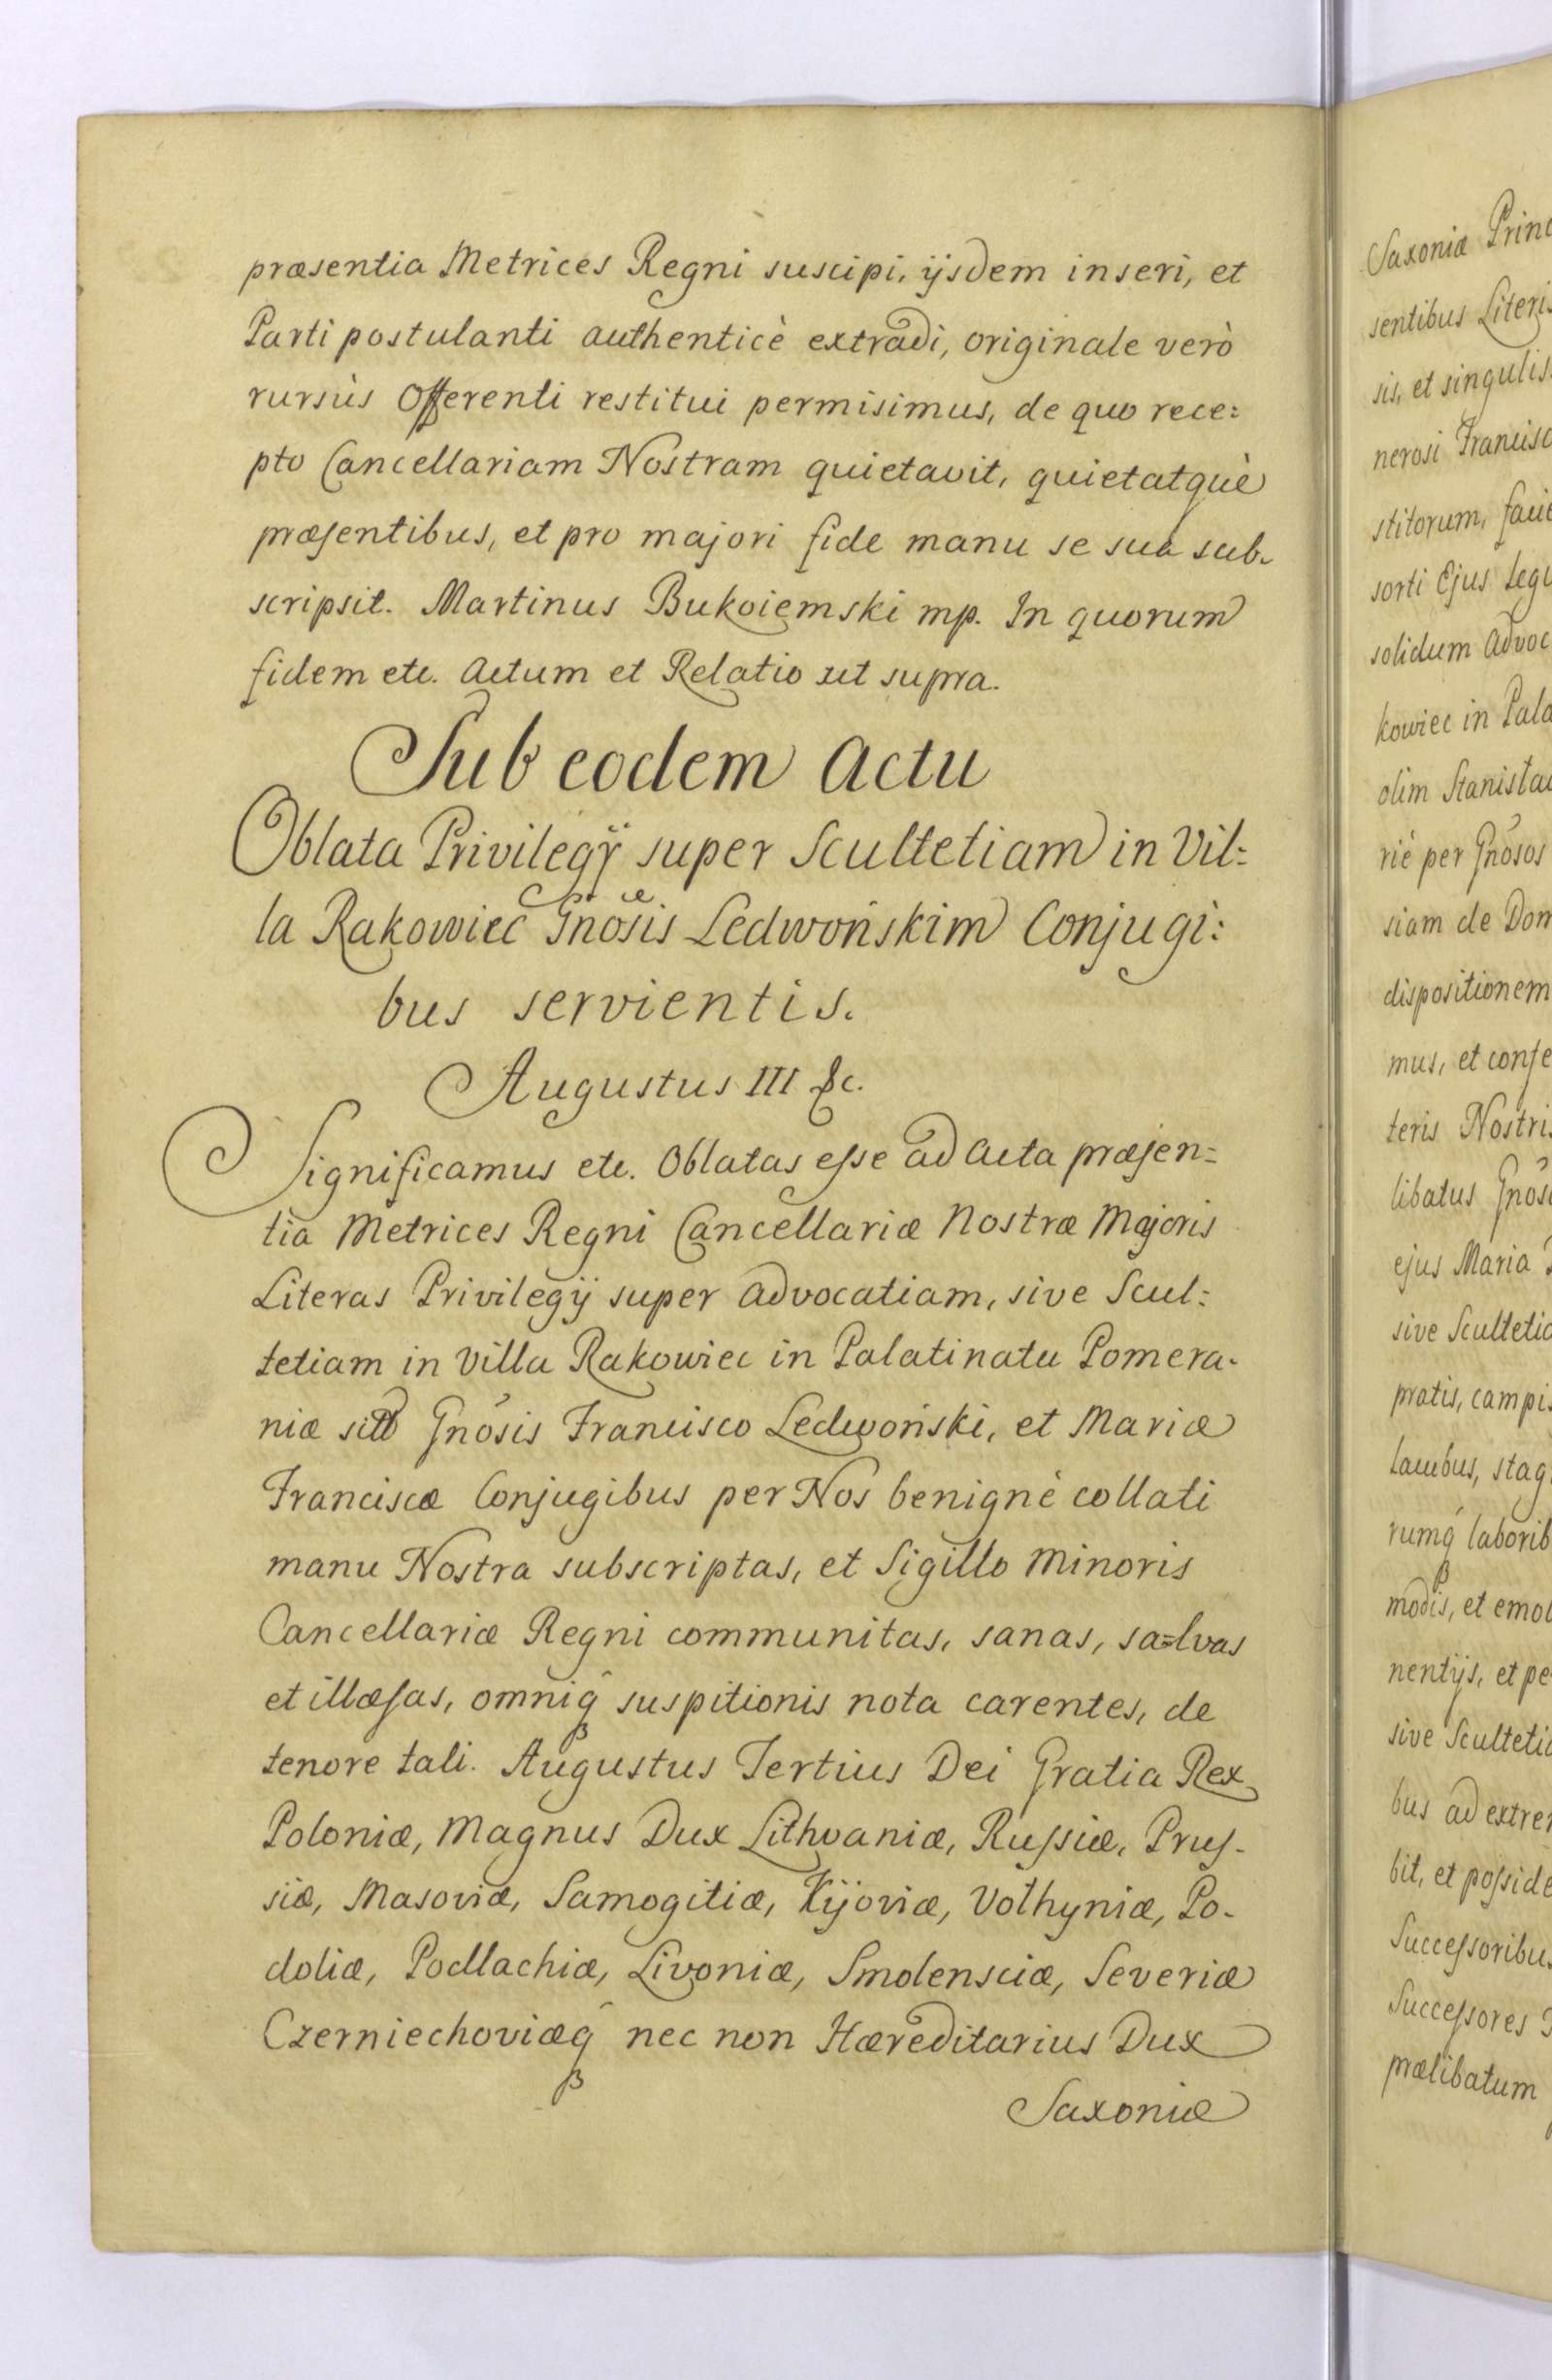 præsentia Metrices Regni suscipi, ijsdem inseri, et
Parti postulanti authenticè extradi, originale verò
rursùs Offerenti restitui permisimus, de quo rece=
pto Cancellariam Nostram quietavit, quietatquè
præsentibus, et pro majori fide manu se suâ sub-
scripsit. Martinus Bukoiemski mp. In quorum
fidem etc. Actum et Relatio ut supra.
Sub eodem Actu
Oblata Privilegÿ super Scultetiam in Vil=
la Rakowiec Gnosis Ledwońskim Conjugi:
bus servientis.
Augustus III &c.
Significamus etc. Oblatas esse ad Acta præsen=
tia Metrices Regni Cancellariæ Nostræ Majoris
Literas Privilegij super Advocatiam, sive Scul:
tetiam in Villa Rakowiec in Palatinatu Pomera-
niæ Gnosis Francisco Ledwoński, et Mariæ
Franciscæ Conjugibus per Nos benignè collati
manu Nostra subscriptas, et Sigillo Minoris
Cancellariæ Regni communitas, sanas, sa=lvas
et illæsas, omniq́ suspitionis nota carentes, de
tenore tali. Augustus Tertius Dei Gratia Rex
Poloniæ, Magnus Dux Lithvaniæ, Russiæ, Prus-
siæ, Masoviæ, Samogitiæ, Kijoviæ, Volhyniæ, Po-
doliæ, Podlachiæ, Livoniæ, Smolensciæ, Severiæ
Czerniechoviæq́ nec non Hæreditarius Dux
Saxoniæ
Saxoniæ Princ
sentibus Literis
sis, et singulis
nerosi Francisc
stitorum, facie
sorti Ejus Leg
solidum Advoc
kowiec in Pala
olim Stanisla
riè per Gnosos
siam de Dom
dispositionem
mus, et conse
teris Nostris
libatus Gnos
ejus Maria
sive Scultetia
pratis, campis
lacubus, stag
rumq́ laborib
modis, et emol
nentijs, et pe
sive Scultetia
bus ad extre
bit, et posside
Successoribus
Successores
prælibatum